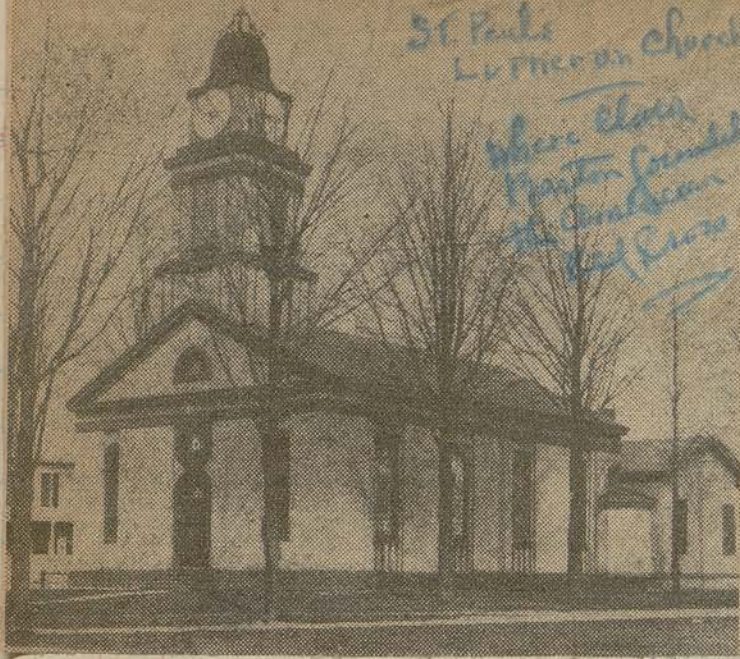 St. Pauls
Lutheran Church
Where Clara
Barton founded
the American
Red Cross